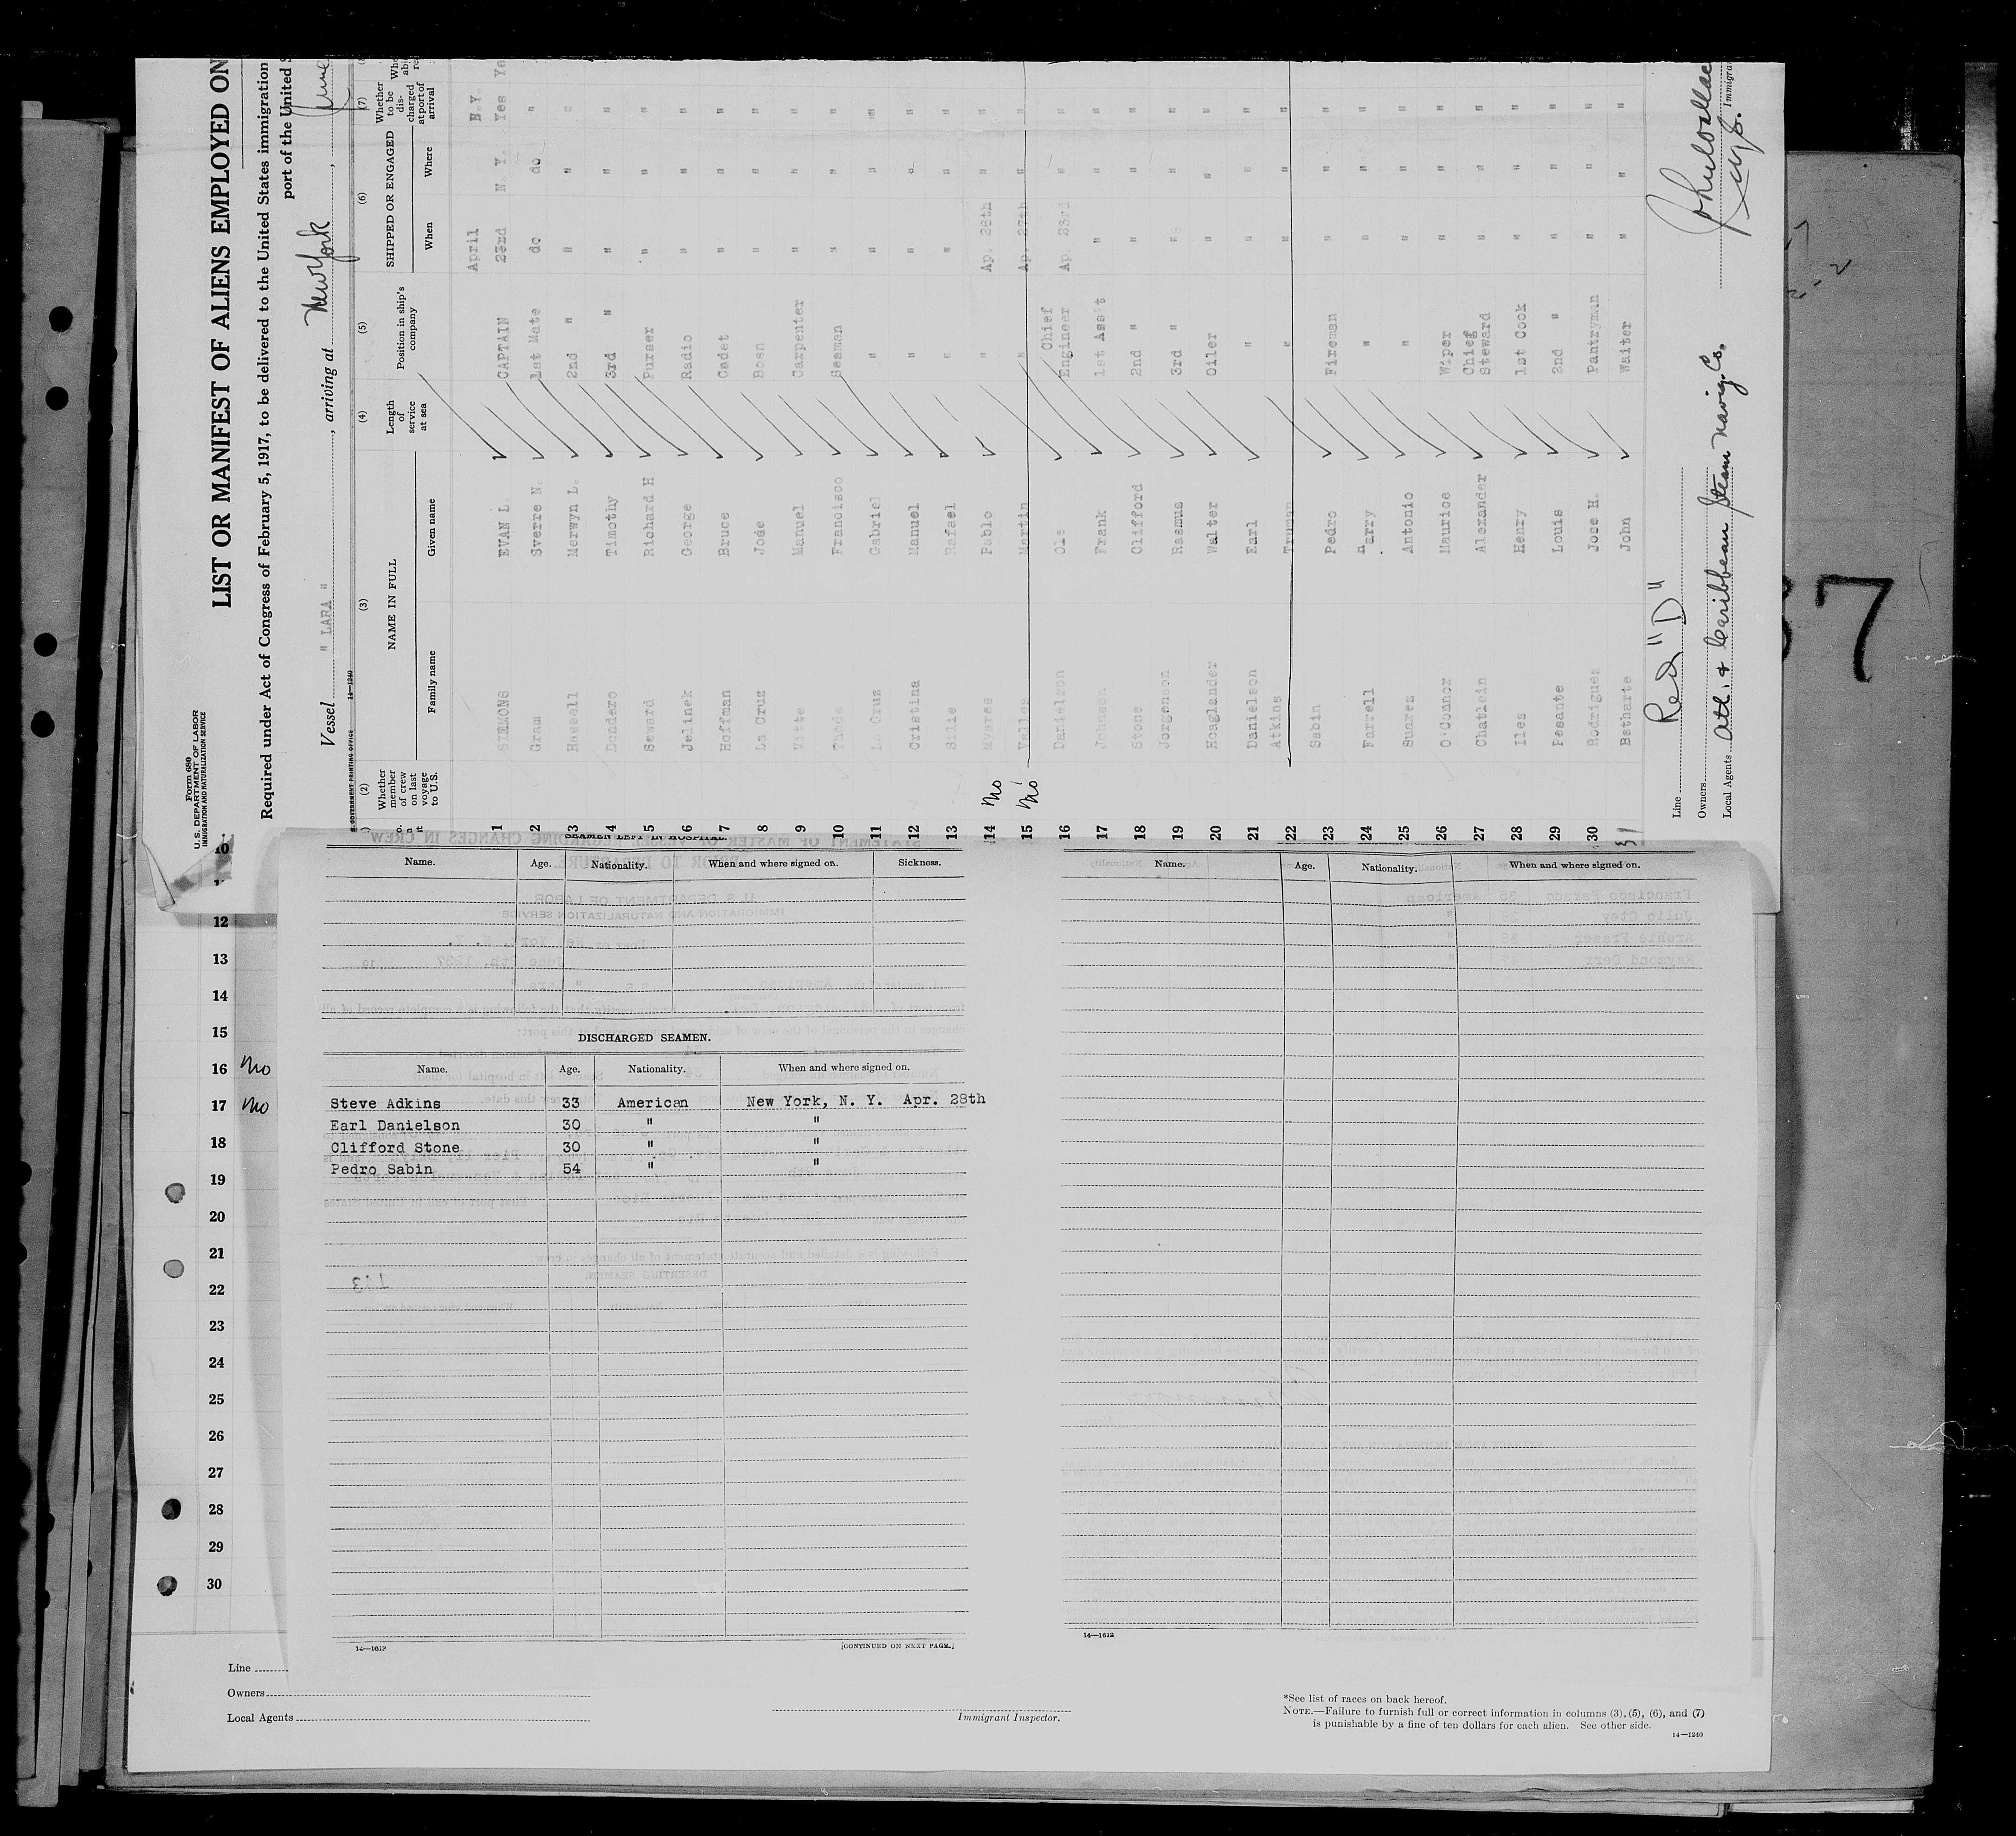 Form 680
U. S. DEPARTMENT OF LABOR
IMMIGRATION AND NATURALIZATION SERVICE
LIST OR MANIFEST OF ALIENS EMPLOYED ON
Required under Act of Congress of February 5, 1917, to be delivered to the United States immigration
port of the United S
Vessel " LARA " , arriving at New York , June
U. S. GOVERNMENT PRINTING OFFICE 14—1240
(2) (3) (4) (5) (6) (7)
Whether member of crew on last voyage to U.S. NAME IN FULL Length of service at sea Position in ship's company SHIPPED OR ENGAGED Whether to be discharged at port of arrival
Family name Given name When Where
April N.Y.
1 SIMMONS EVAN L. CAPTAIN 23nd N. Y. Yes Ye
2 Gram Sverre N. 1st Mate do do "
3 Hassell Merwyn L. 2nd " " " "
4 Dondero Timothy 3rd " " " "
5 Seward Richard H Purser " " "
6 Jelinek George Radio " " "
7 Hoffman Bruce Cadet " " "
8 La Cruz José Bosn " " "
9 Vitte Manuel Carpenter " " "
10 Francisco Seaman " " "
11 La Cruz Gabriel " " " "
12 Cristina Manuel " " " "
13 Silie Rafael " " " "
14 No Myares Pablo " Ap. 28th " "
15 No Valles Martin " Ap. 29th " "
16 Danielson Ole Chief Engineer Ap. 23rd " "
17 Johnson Frank 1st Ass't " " "
18 Stone Clifford 2nd " " " "
19 Jorgenson Rasmus 3rd " " " "
20 Hoaglander Walter Oiler " " "
21 Danielson Earl " " " "
22 Atkins Truman " " " "
23 Sabin Pedro Fireman " " "
24 Farrell Harry " " " "
25 Suarez Antonio " " " "
26 O'Connor Maurice Wiper " " "
27 Chatlein Alexander Chief Steward " " "
28 Iles Henry 1st Cook " " "
29 Pesante Louis 2nd " " " "
30 Rodriguez Jose H. Pantryman " " "
31 Betharte John Waiter " " "
Line Red "D"
Owners
Local Agents Atl. & Caribbean Steam Navig. Co.
Immigra
37
SEAMEN LEFT IN HOSPITAL.
Name. Age. Nationality. When and where signed on. Sickness.
Name. Age. Nationality. When and where signed on.
DISCHARGED SEAMEN.
Name. Age. Nationality. When and where signed on.
Steve Adkins 33 American New York, N. Y. Apr. 28th
Earl Danielson 30 " "
Clifford Stone 30 " "
Pedro Sabin 54 " "
14—1612 [CONTINUED ON NEXT PAGE.]
14—1612
10
12
13
14
15
16 No
17 No
18
19
20
21
22
23
24
25
26
27
28
29
30
Line
Owners
Local Agents
Immigrant Inspector.
*See list of races on back hereof.
NOTE.—Failure to furnish full or correct information in columns (3), (5), (6), and (7)
is punishable by a fine of ten dollars for each alien. See other side.
14—1240